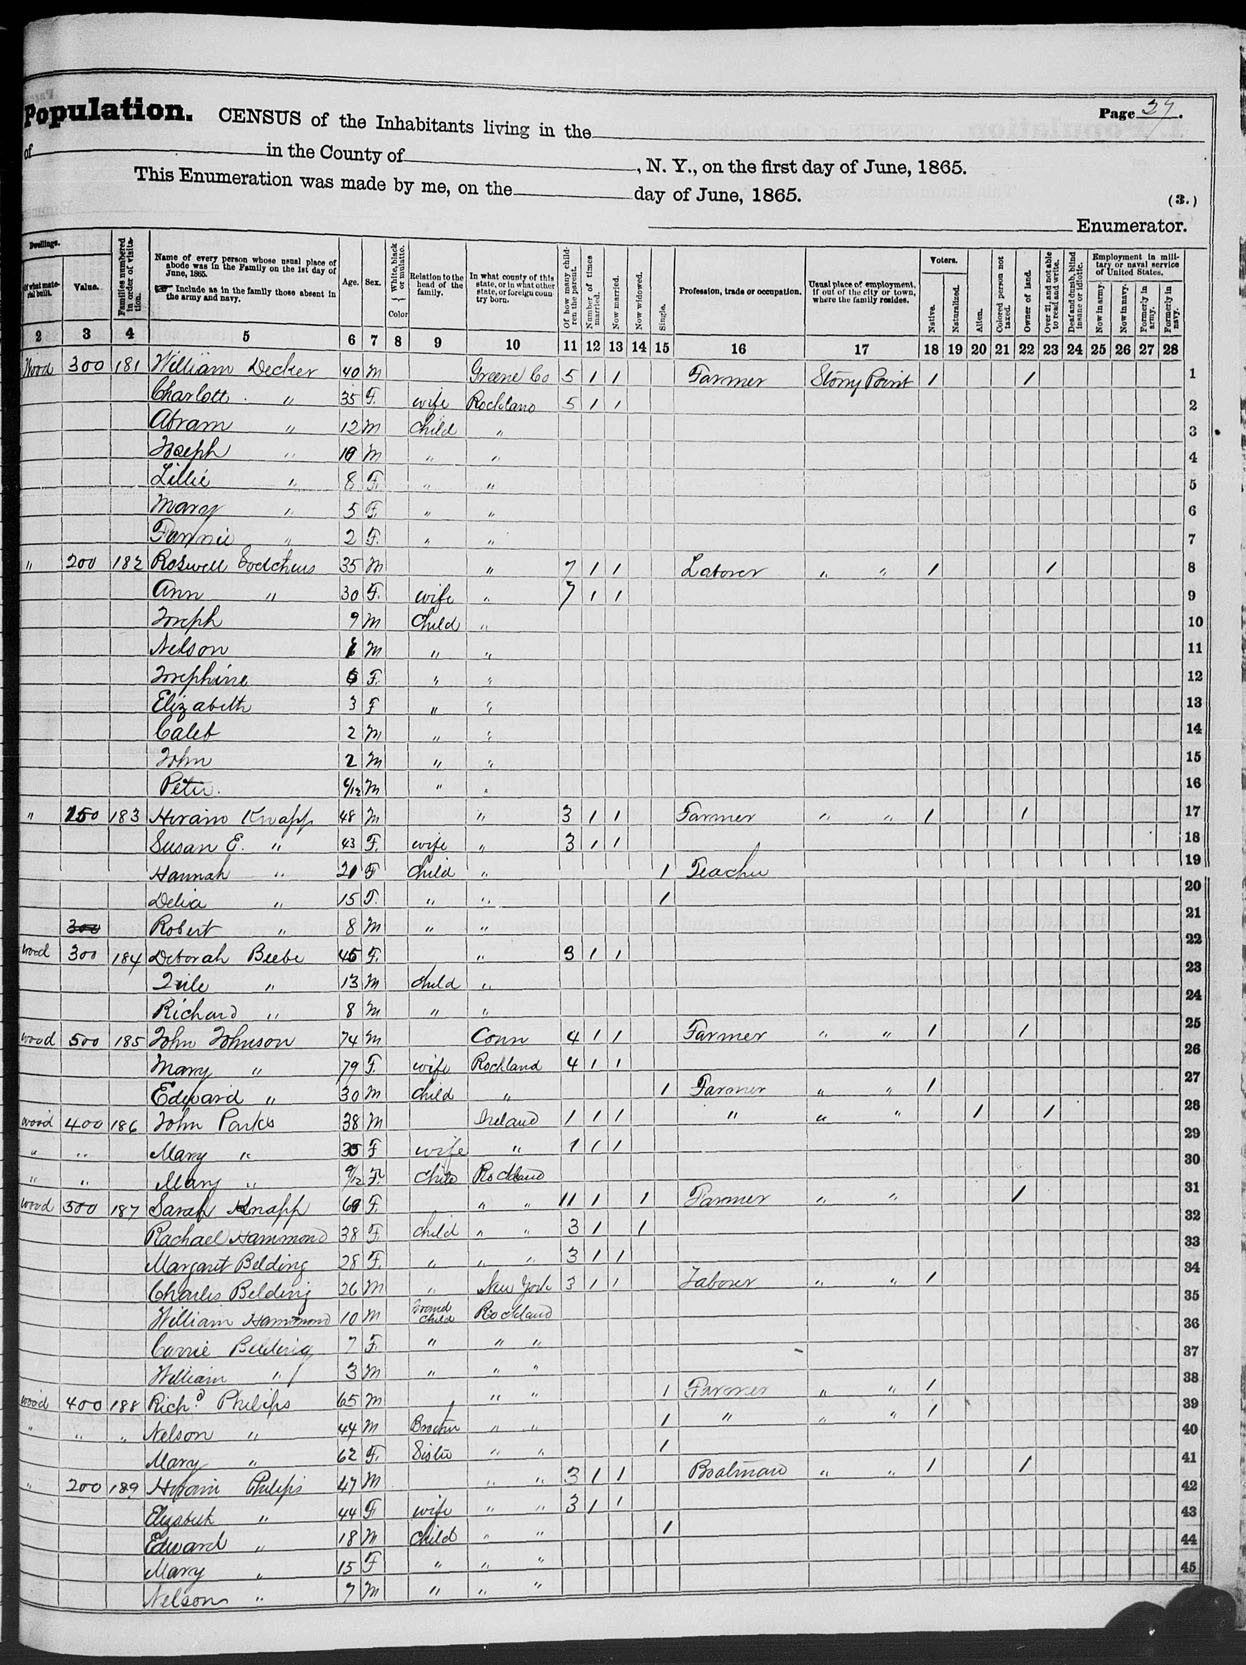 Population. CENSUS of the Inhabitants living in the Page 27.
of in the County of , N. Y., on the first day of June, 1865.
This Enumeration was made by me, on the day of June, 1865. (3.)
Enumerator.
Dwellings. Of what material built. Value. Families numbered in order of visitation. Name of every person whose usual place of abode was in the Family on the 1st day of June, 1865. ☞ Include as in the family those absent in the army and navy. Age. Sex. White, black or mulatto. Color Relation to the head of the family. In what county of this state, or in what other state, or foreign country born. Of how many children the parent. Number of times married. Now married. Now widowed. Single. Profession, trade or occupation. Usual place of employment, if out of the city or town, where the family resides. Voters. Native. Naturalized. Alien. Colored person not taxed. Owner of land. Over 21, and not able to read and write. Deaf and dumb, blind insane or idiotic. Employment in military or naval service of United States. Now in army. Now in navy. Formerly in army. Formerly in navy.
2 3 4 5 6 7 8 9 10 11 12 13 14 15 16 17 18 19 20 21 22 23 24 25 26 27 28
Wood 300 181 William Decker 40 M Greene Co 5 1 1 Farmer Stony Point 1 1 1
Charlott " 35 F. wife Rockland 5 1 1 2
Abram " 12 M Child " 3
Joseph " 10 M " " 4
Lillie " 8 F. " " 5
Mary " 5 F. " " 6
Fannie " 2 F. " " 7
" 200 182 Roswell 35 M " 7 1 1 Laborer " " 1 1 8
Ann " 30 F. wife " 7 1 1 9
Joseph 9 M Child " 10
Nelson M " " 11
Josephine F. " " 12
Elizabeth 3 F " " 13
Caleb 2 M " " 14
John 2 M " " 15
Peter. M " " 16
" 150 183 Hiram Knapp 48 M " 3 1 1 Farmer " " 1 1 17
Susan E. " 43 F. wife " 3 1 1 18
Hannah " 21 F Child " 1 Teacher 19
Delia " 15 F. " " 1 20
300 Robert " 8 M " " 21
wood 300 184 Deborah Beebe 45 F. " 3 1 1 22
" 13 M child " 23
Richard " 8 M " " 24
wood 500 185 John Johnson 74 M Conn 4 1 1 Farmer " " 1 1 25
Mary " 79 F. wife Rockland 4 1 1 26
Edward " 30 M child " 1 Farmer " " 1 27
wood 400 186 John Parks 38 M Ireland 1 1 1 " " " 1 1 28
" " Mary " 35 F wife " 1 1 1 29
" " Mary " 9/12 F. child Rockland 30
wood 500 187 Sarah Knapp F. " " 11 1 1 Farmer " " 1 31
Rachael Hammond 38 F. child " " 3 1 1 32
Margaret Belding 28 F. " " " 3 1 1 33
Charles Belding 26 M " New York 3 1 1 Laborer " " 1 34
William Hammond 10 M Grand Child Rockland 35
Carrie Belding 7 F. " " " 36
William " 3 M " " " 37
wood 400 188 Richd Philips 65 M " " 1 Farmer " " 1 38
" " " Nelson " 44 M Brother " " 1 " " " 1 39
Mary " 62 F. Sister " " 1 40
" 200 189 Hiram Philips 47 M " " 3 1 1 Boatman " " 1 1 41
Elizabeth " 44 F wife " " 3 1 1 42
Edward " 18 M Child " " 1 43
Mary " 15 F " " " 44
Nelson " 7 M " " " 45